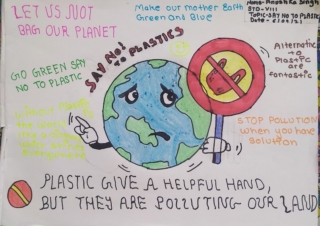 LET US NOT
BAG OUR PLANET
Make our mother Earth
Green and Blue
STD-VIII
Topic-SAY NO TO PLASTIC
GO GREEN SAY
NO TO PLASTIC
SAY NO! TO PLASTICS
Alternative
to
Plastic
are
fantastic
STOP POLLUTION
when you have
solution
PLASTIC GIVE A HELPFUL HAND,
BUT THEY ARE POLLUTING OUR LAND